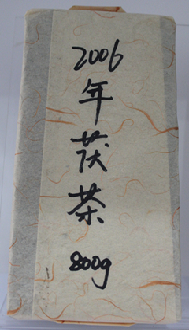 2006
年
茯
茶
800g